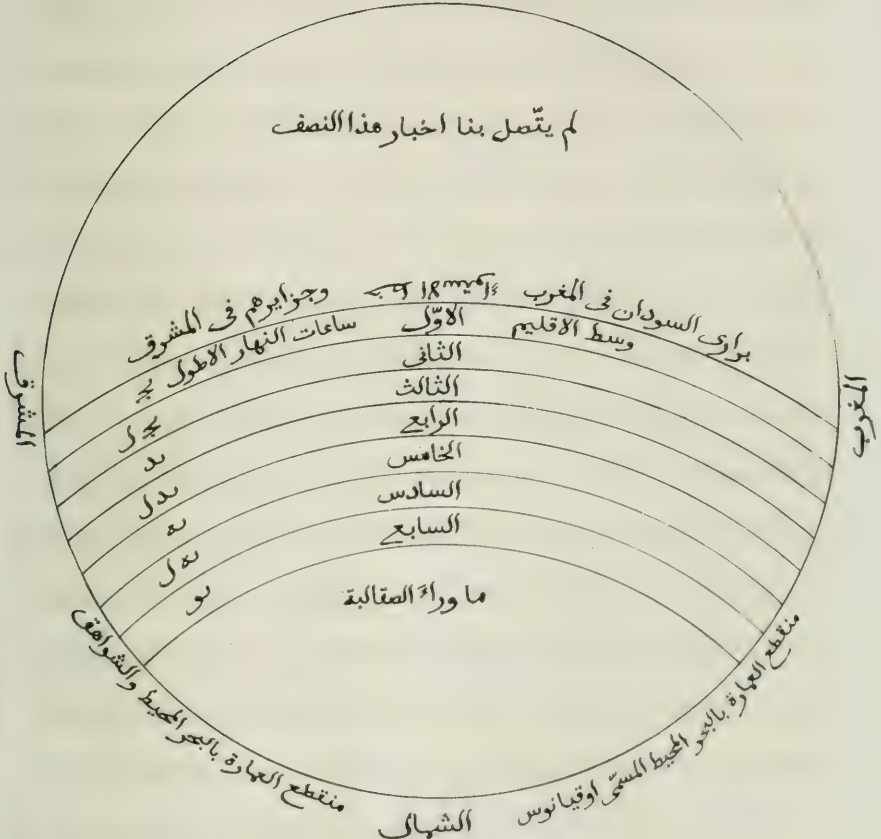 لم يتّصل بنا اخبار هذا النصف
برارى السودان فى المغرب
خط الاستواء
وجزايرهم فى المشرق
وسط الاقليم
الاوّل
ساعات النهار الاطول يج
الثانى
يج ل
الثالث
يد
الرابع
يد ل
الخامس
يه
السادس
يه ل
السابع
يو
ما وراءَ الصقالبة
المغرب
المشرق
منقطع العمارة بالبحر المحيط المسمّى اوقيانوس
منقطع العمارة بالبحر المحيط والشواهق
الشمال